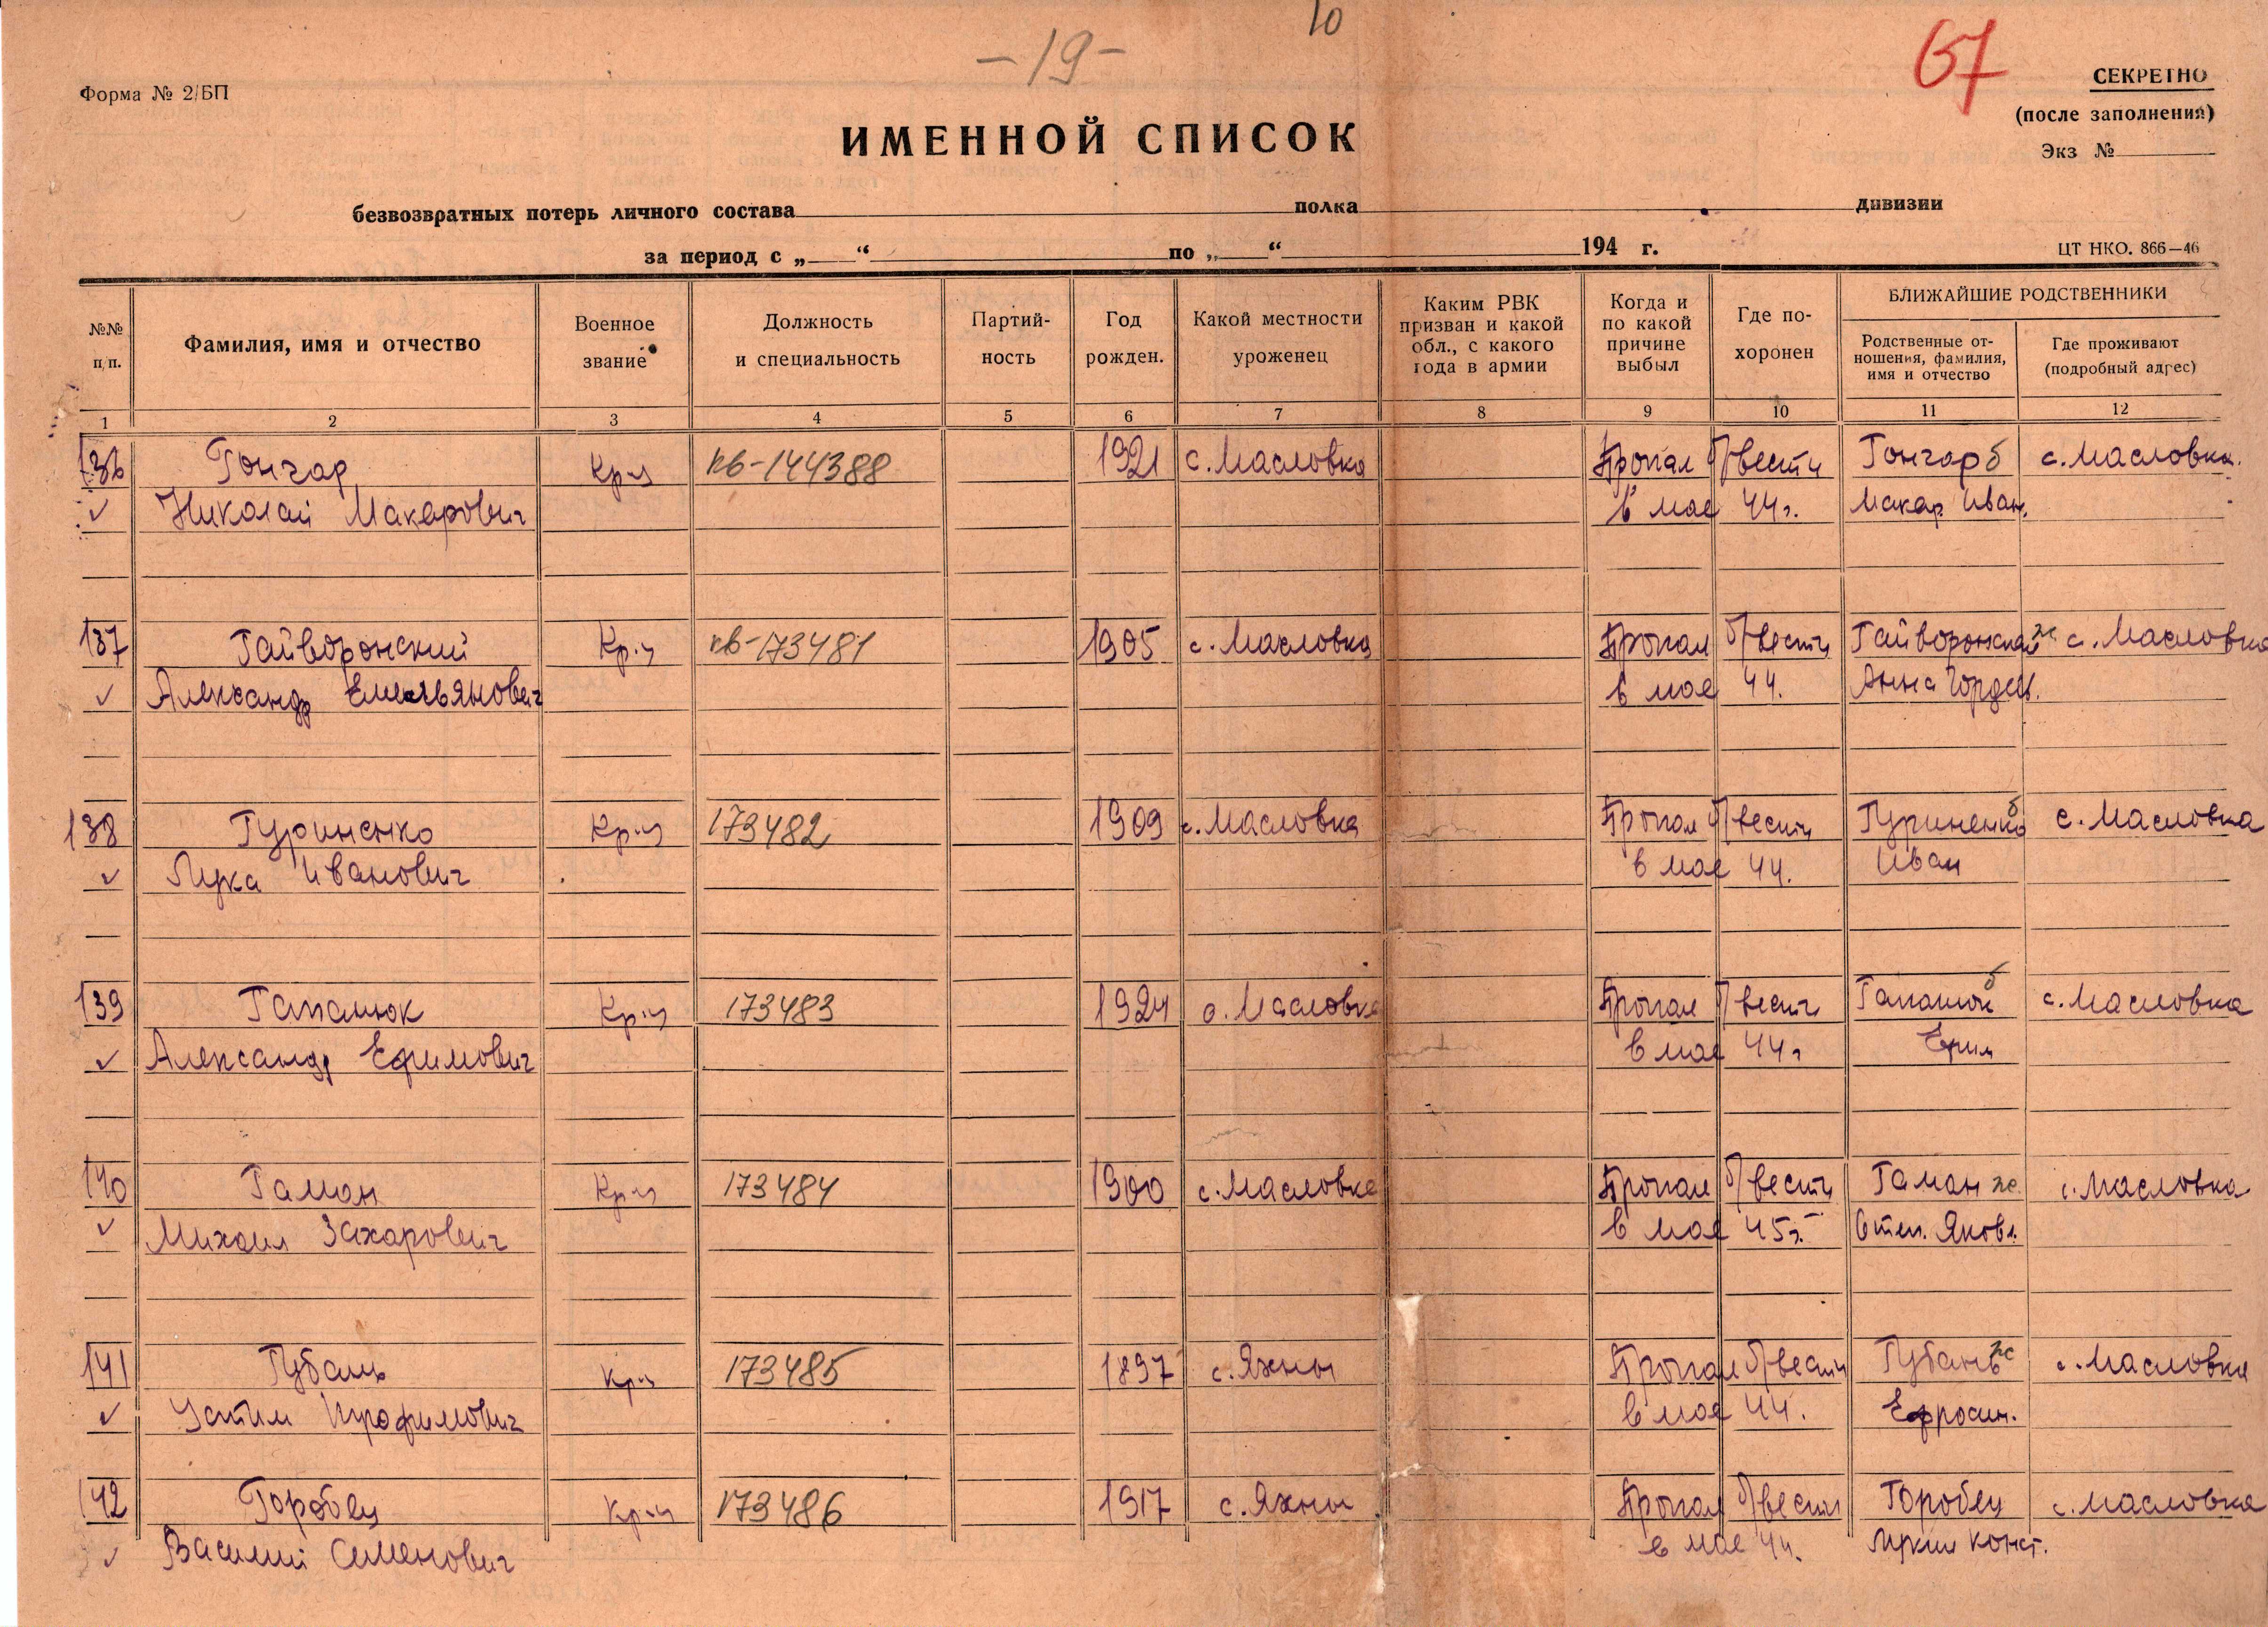 10
-19-
67
СЕКРЕТНО
Форма № 2/БП
(после заполнения)
ИМЕННОЙ СПИСОК
Экз №
безвозвратных потерь личного состава полка дивизии
за период с „ “ по „ “ 194 г. ЦТ НКО. 866—46
№№ п/п. Фамилия, имя и отчество Военное звание Должность и специальность Партийность Год рожден. Какой местности уроженец Каким РВК призван и какой обл., с какого года в армии Когда и по какой причине выбыл Где похоронен БЛИЖАЙШИЕ РОДСТВЕННИКИ Родственные отношения, фамилия, имя и отчество Где проживают (подробный адрес)
1 2 3 4 5 6 7 8 9 10 11 12
136 Гончар Кр-ц кв-144388 1921 с. Масловка Пропал б/вести Гончар б с. Масловка.
✓ Николай Макарович в мае 44г. Макар Иван.
137 Гайворонский Кр-ц кв-173481 1905 с. Масловка Пропал б/вести Гайворонская ж с. Масловка
✓ Александр Емельянович в мае 44. Анна Гордев.
138 Гуриненко Кр-ц 173482 1909 с. Масловка Пропал б/вести Гуриненко б с. Масловка
✓ Лука Иванович в мае 44. Иван
139 Гапанюк Кр-ц 173483 1924 с. Масловка Пропал б/вести Гапанюк б с. Масловка
✓ Александр Ефимович в мае 44г Ефим
140 Гаман Кр-ц 173484 1900 с. Масловка Пропал б/вести Гаман ж. с. Масловка
✓ Михаил Захарович в мае 45г. Степ. Яковл.
141 Губань Кр-ц 173485 1897 с. Яхны Пропал б/вести Губань ж с. Масловка
✓ Устим Трофимович в мае 44. Ефросин.
142 Горобец Кр-ц 173486 1917 с. Яхны Пропал б/вести Горобец с. Масловка
✓ Василий Семенович в мае 44. Конст.